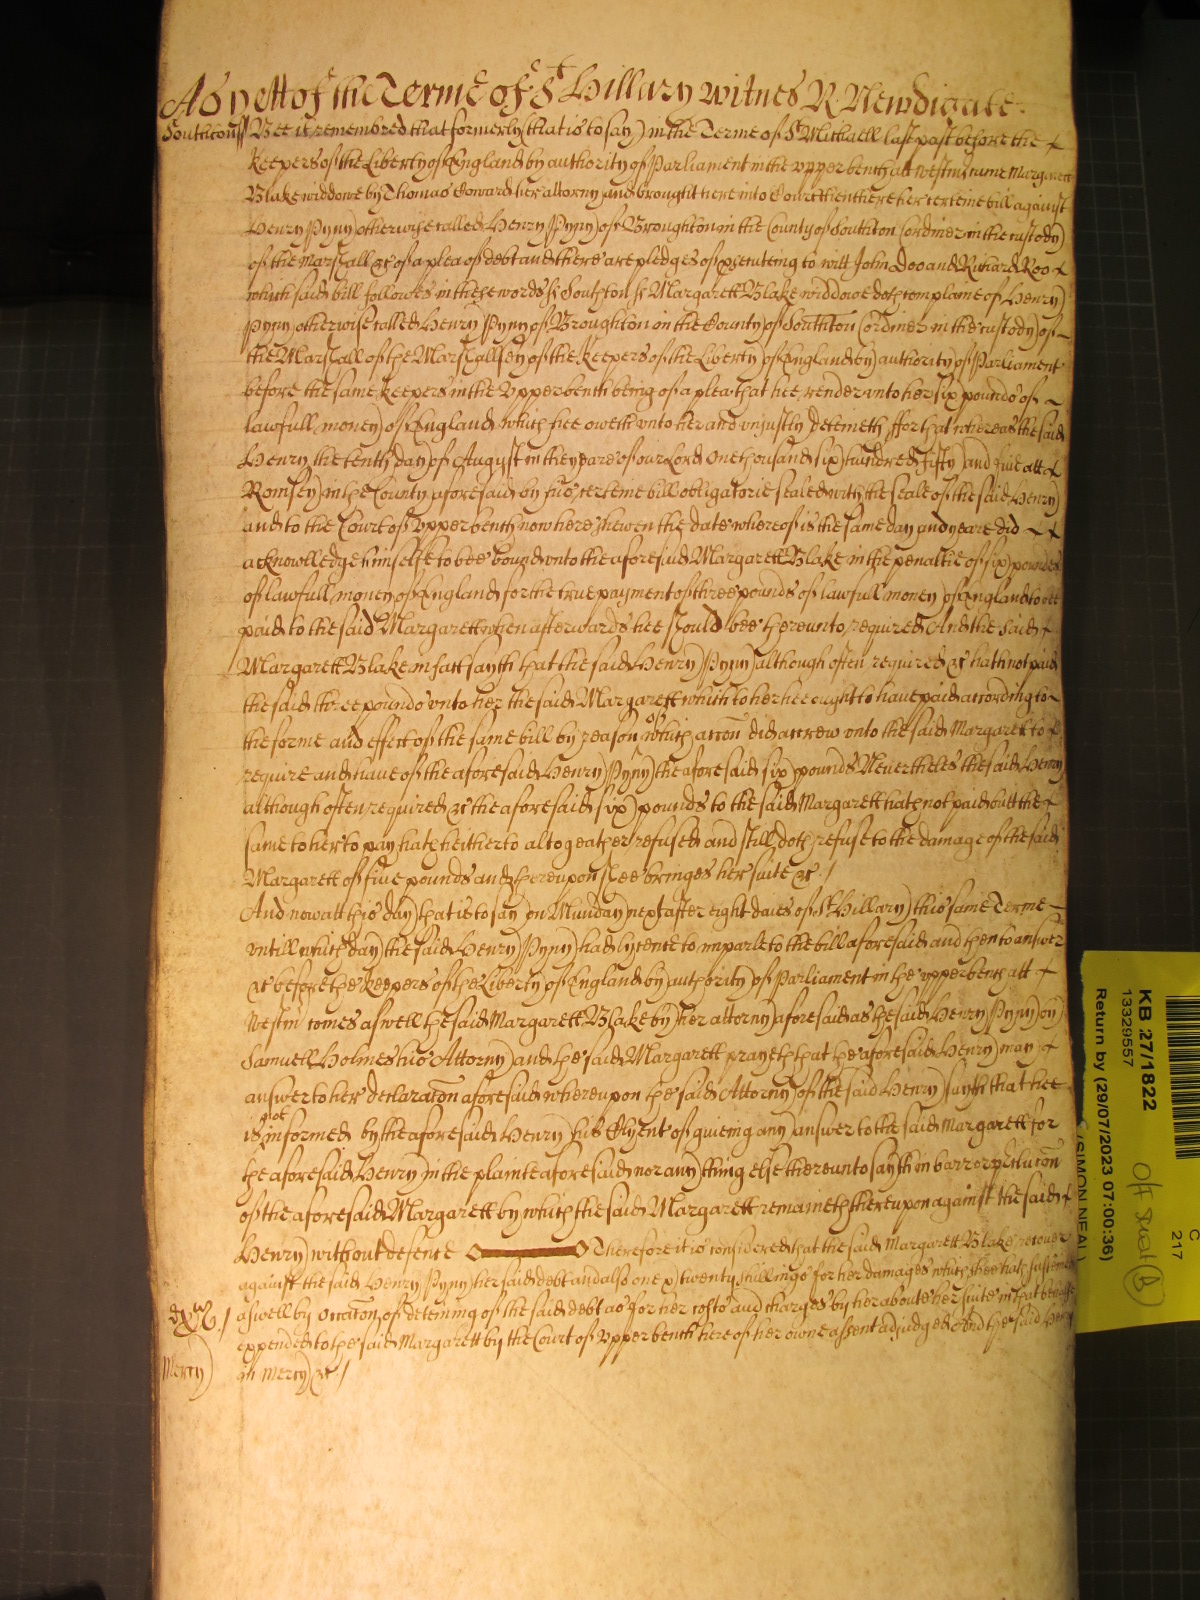 As yett of the Terme of St Hillary witnes R: Newdigate.
Southton ss Bee it remembred that formerly (that is to say) in the Terme of St Michaell last past before the
keepers of the Liberty of England by authority of Parliament in the upper bench att Westminster came Margarett
Blake widdowe by Thomas Coward her attorny and brought here into Court then there her certeine bill against
Henry Pyny otherwise called Henry Pyny of Broughton in the County of Southton Cordiner in the custody
of the Marshall &c of a plea of debt and there are pledges of prosecuteing to witt John Doo and Richard Roo
which said bill followes in these words ss Southton ss Margarett Blake widdowe doth complaine of Henry
Pyny otherwise called Henry Pyny of Broughton in the County of Southton Cordiner in the custody of
the Marshall of the Marshallsey of the Keepers of the Liberty of England by authority of Parliament
before the same keepers in the Upper bench being of a plea that hee render unto her six pounds of
lawfull money of England which hee oweth unto her and unjustly deteineth ffor that whereas the said
Henry the tenth day of August in the yeare of our Lord One thousand six hundred fifty and five att
Romsey in the County aforesaid by his certeine bill obligatorie sealed with the seale of the said Henry
and to the Court of Upper bench now here shewen the date whereof is the same day and yeare did
acknowlledge himselfe to bee bound unto the aforesaid Margarett Blake in the penaltie of six pounds
of lawfull money of England for the true payment of three pounds of lawfull money of England to bee
paid to the said Margarett when afterwards hee should bee thereunto required And the said
Margarett Blake in fact sayth that the said Henry Pyny although often required &c hath not paid
the said three pounds unto her the said Margarett which to her hee ought to have paid according to
the forme and effect of the same bill by reason of which accon did accrew unto the said Margarett to
require and have of the aforesaid Henry Pyny the aforesaid six pounds Nevertheles the said Henry
although often required &c the aforesaid six pounds to the said Margarett hath not paid butt the
same to her to pay hath heitherto altogeather refused and still doth refuse to the damage of the said
Margarett of five pounds and thereupon shee bringes her suite &c /
And now att this day that is to say on Munday next after eight daies of St Hillary this same Terme
untill which day the said Henry Pyny had lycence to imparle to the bill aforesaid and then to answer
&c before the Keepers of the Liberty of England by authority of Parliament in the upper bench att
Westm comes aswell the said Margarett Blake by her attorny aforesaid as the said Henry Pyny by
Samuell Holmes his Attorny and the said Margarett prayeth that the aforesaid Henry may
answer to her declaracon aforesaid whereupon the said Attorny of the said Henry sayth that hee
is not informed by the aforesaid Henry his Clyent of giveing any answer to the said Margarett for
the aforesaid Henry in the plainte aforesaid nor any thing else thereunto sayth in barr or preclucon
of the aforesaid Margarett by which the said Margarett remaineth thereupon against the said
Henry without defence Therefore it is considered that the said Margarett Blake recover
against the said Henry Pyny her said debt and also one & twenty shillings for her damages which shee hath susteined
aswell by occacon of deteining of the said debt as for her costs and charges by her about her suite in that behalfe
expended to the said Margarett by the Court of Upper bench here of her owne assent adjudged And the said Henry
Mercy in Mercy &c /
KB 27/1822
13329557
Return by (29/07/2023 07:00:36)
(SIMON NEAL)
C
217